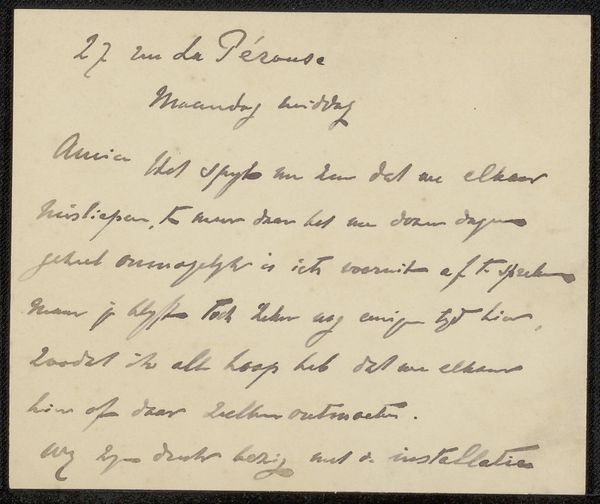 27 rue La Pérouse
Maandag middag
Amice Het spyt me zeer dat we elkaar
misliepen, te meer daar het me dezer dagen
geheel onmogelyk is iets vooruit af te spreken
maar je blyft toch zeker nog eenige tyd hier,
zoodat ik alle hoop heb dat we elkaar
hier of daar zullen ontmoeten.
Wy zyn druk bezig met de installatie